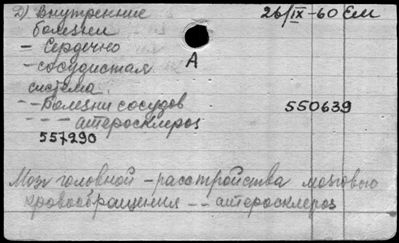 2) Внутренние 26/IX-60 Ем
болезни
- Сердечно
- сосудистая А
система
-- Болезни сосудов 550639
--- атеросклероз
557290
Мозг головной - расстройства мозгового
кровообращения -- атеросклероз